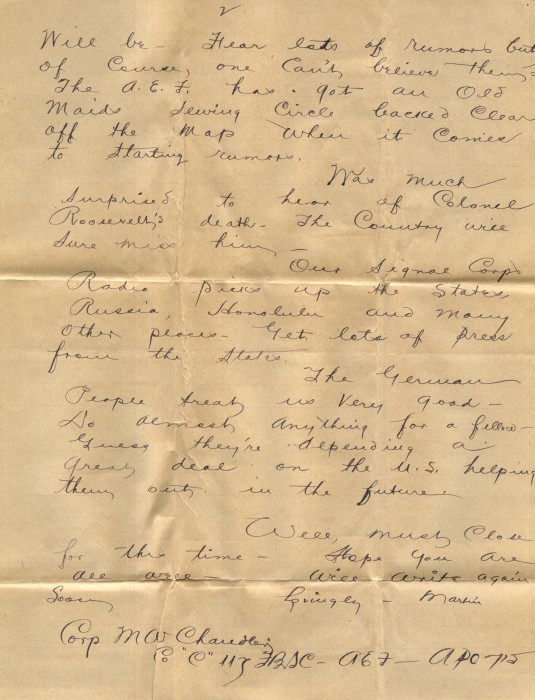 2
Will be - Hear lots of rumors but
of course, one can't believe them -
The A.E.F. has got an Old
Maids Sewing Circle backed clear
off the map when it comes
to starting rumors.
Was much
surprised to hear of Colonel
Roosevelt's death - The Country will
sure miss him -
Our Signal Corps
Radio picks up the States,
Russia, Honolulu and many
other places - Get lots of press
from the States.
The German
People treat us very good -
Do almost anything for a fellow -
Guess they're depending a
great deal on the U.S. helping
them out in the future
Well, must close
for this time - Hope you are
all well - Will write again
soon Lovingly - Martin
Corp M W Chandler
Co "C" 117 FBSC - AEF - APO -715